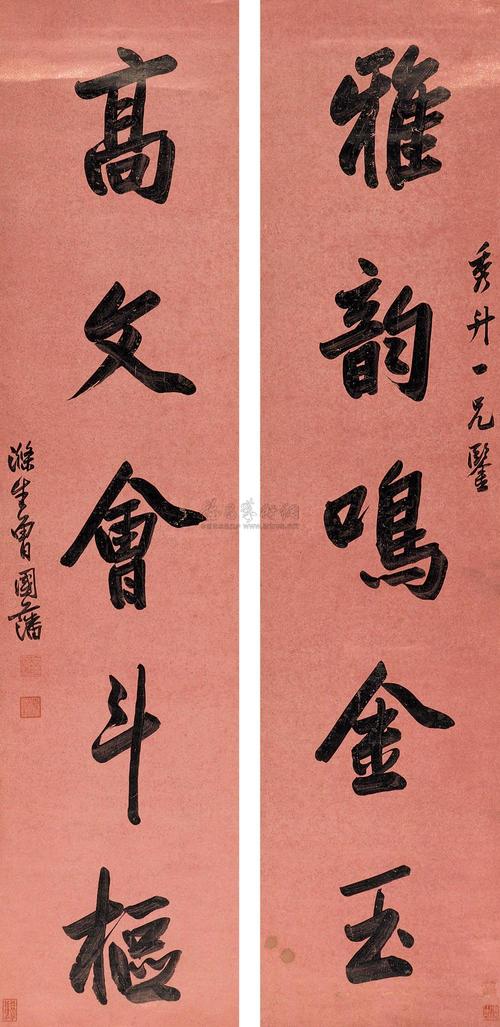 秀升一兄鑒
雅韵鳴金玉
高文會斗樞
滌生曾國藩